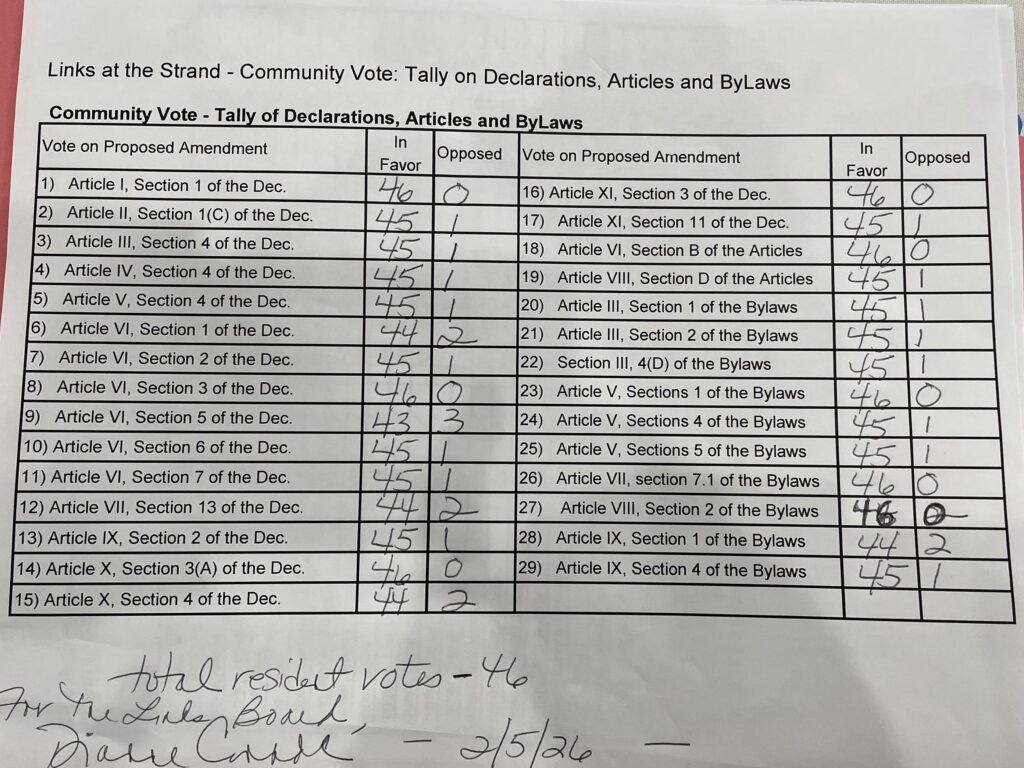 Links at the Strand - Community Vote: Tally on Declarations, Articles and ByLaws
Community Vote - Tally of Declarations, Articles and ByLaws
Vote on Proposed Amendment In Favor Opposed Vote on Proposed Amendment In Favor Opposed
1) Article I, Section 1 of the Dec. 46 0 16) Article XI, Section 3 of the Dec. 46 0
2) Article II, Section 1(C) of the Dec. 45 1 17) Article XI, Section 11 of the Dec. 45 1
3) Article III, Section 4 of the Dec. 45 1 18) Article VI, Section B of the Articles 46 0
4) Article IV, Section 4 of the Dec. 45 1 19) Article VIII, Section D of the Articles 45 1
5) Article V, Section 4 of the Dec. 45 1 20) Article III, Section 1 of the Bylaws 45 1
6) Article VI, Section 1 of the Dec. 44 2 21) Article III, Section 2 of the Bylaws 45 1
7) Article VI, Section 2 of the Dec. 45 1 22) Section III, 4(D) of the Bylaws 45 1
8) Article VI, Section 3 of the Dec. 46 0 23) Article V, Sections 1 of the Bylaws 46 0
9) Article VI, Section 5 of the Dec. 43 3 24) Article V, Sections 4 of the Bylaws 45 1
10) Article VI, Section 6 of the Dec. 45 1 25) Article V, Sections 5 of the Bylaws 45 1
11) Article VI, Section 7 of the Dec. 45 1 26) Article VII, section 7.1 of the Bylaws 46 0
12) Article VII, Section 13 of the Dec. 44 2 27) Article VIII, Section 2 of the Bylaws 46 0
13) Article IX, Section 2 of the Dec. 45 1 28) Article IX, Section 1 of the Bylaws 44 2
14) Article X, Section 3(A) of the Dec. 46 0 29) Article IX, Section 4 of the Bylaws 45 1
15) Article X, Section 4 of the Dec. 44 2
total resident votes - 46
For the Links Board,
Diane - 2/5/26 -